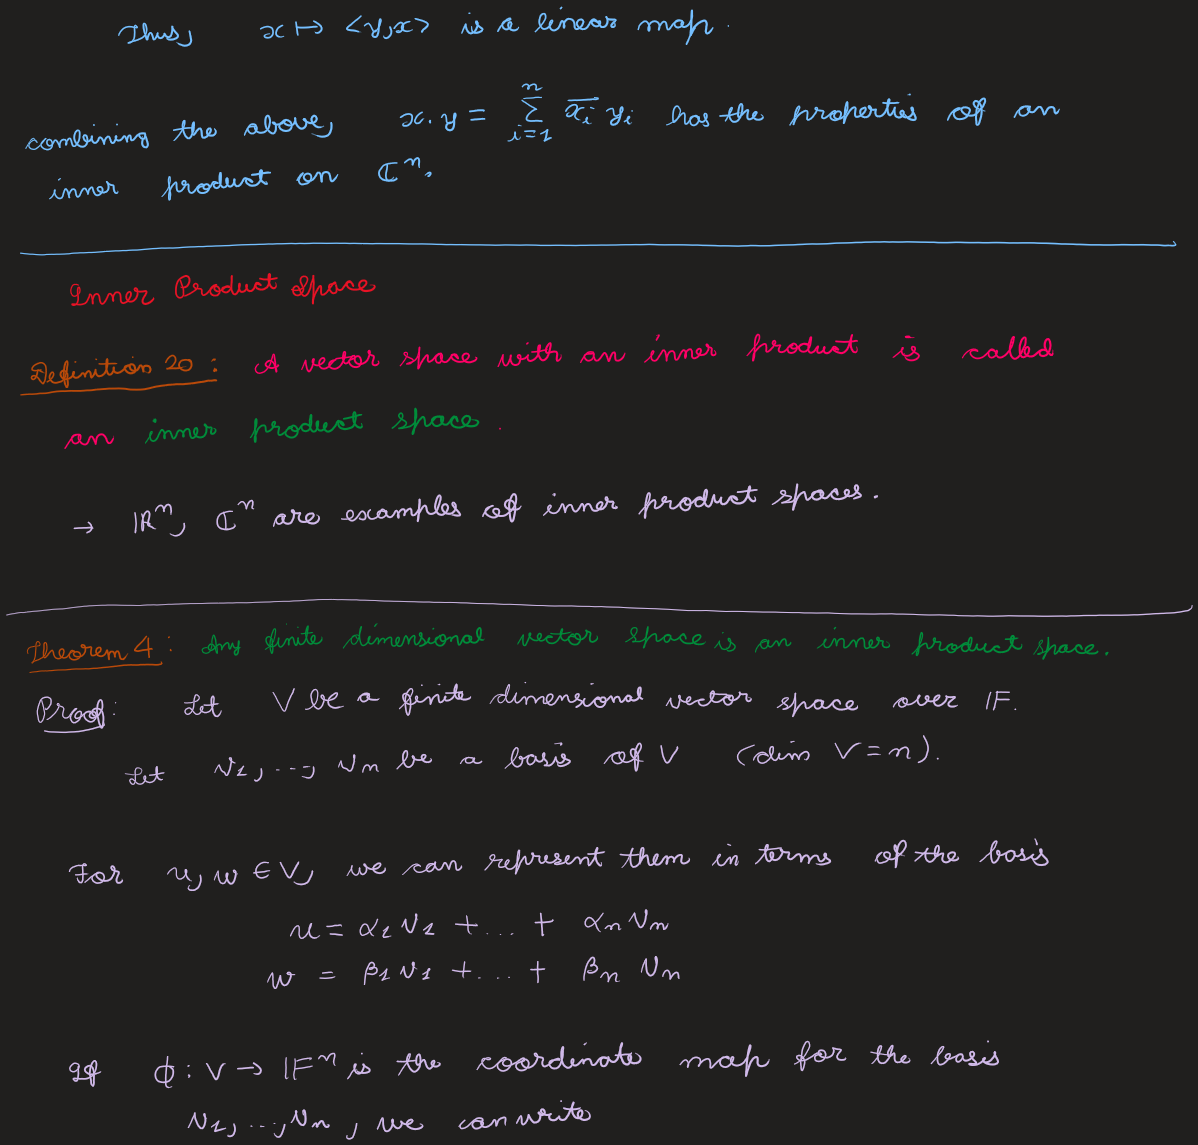 Thus, x ↦ <y,x> is a linear map.
combining the above, x.y = ∑_{i=1}^{n} \overline{x_i} y_i has the properties of an
inner product on ℂ^n.
Inner Product Space
Definition 20 : A vector space with an inner product is called
an inner product space.
→ ℝ^n, ℂ^n are examples of inner product spaces.
Theorem 4 : Any finite dimensional vector space is an inner product space.
Proof: Let V be a finite dimensional vector space over 𝔽.
Let v_1, ..., v_n be a basis of V (dim V = n).
For u, w ∈ V, we can represent them in terms of the basis
u = α_1 v_1 + ... + α_n v_n
w = β_1 v_1 + ... + β_n v_n
If ϕ : V → 𝔽^n is the coordinate map for the basis
v_1, ..., v_n, we can write